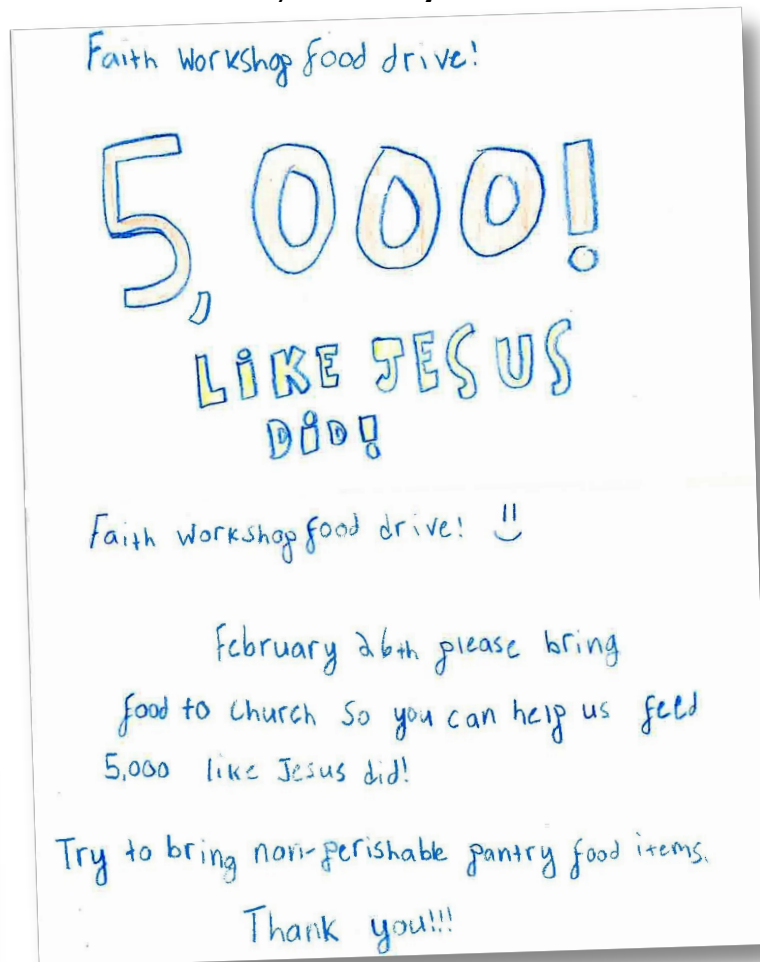 Faith Workshop food drive!
5,000!
LiKE JESUS
DiD!
Faith workshop food drive!
February 26th please bring
food to church So you can help us feed
5,000 like Jesus did!
Try to bring non-perishable pantry food items.
Thank you!!!